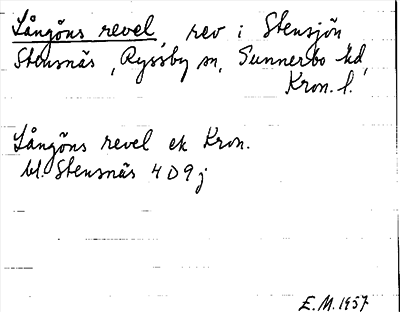 Långöns revel, rev i Stensjön
Stensnäs, Ryssby sn, Sunnerbo hd,
Kron. l.
Långöns revel ek Kron.
bl. Stensnäs 4 D 9 j
E. M. 1957